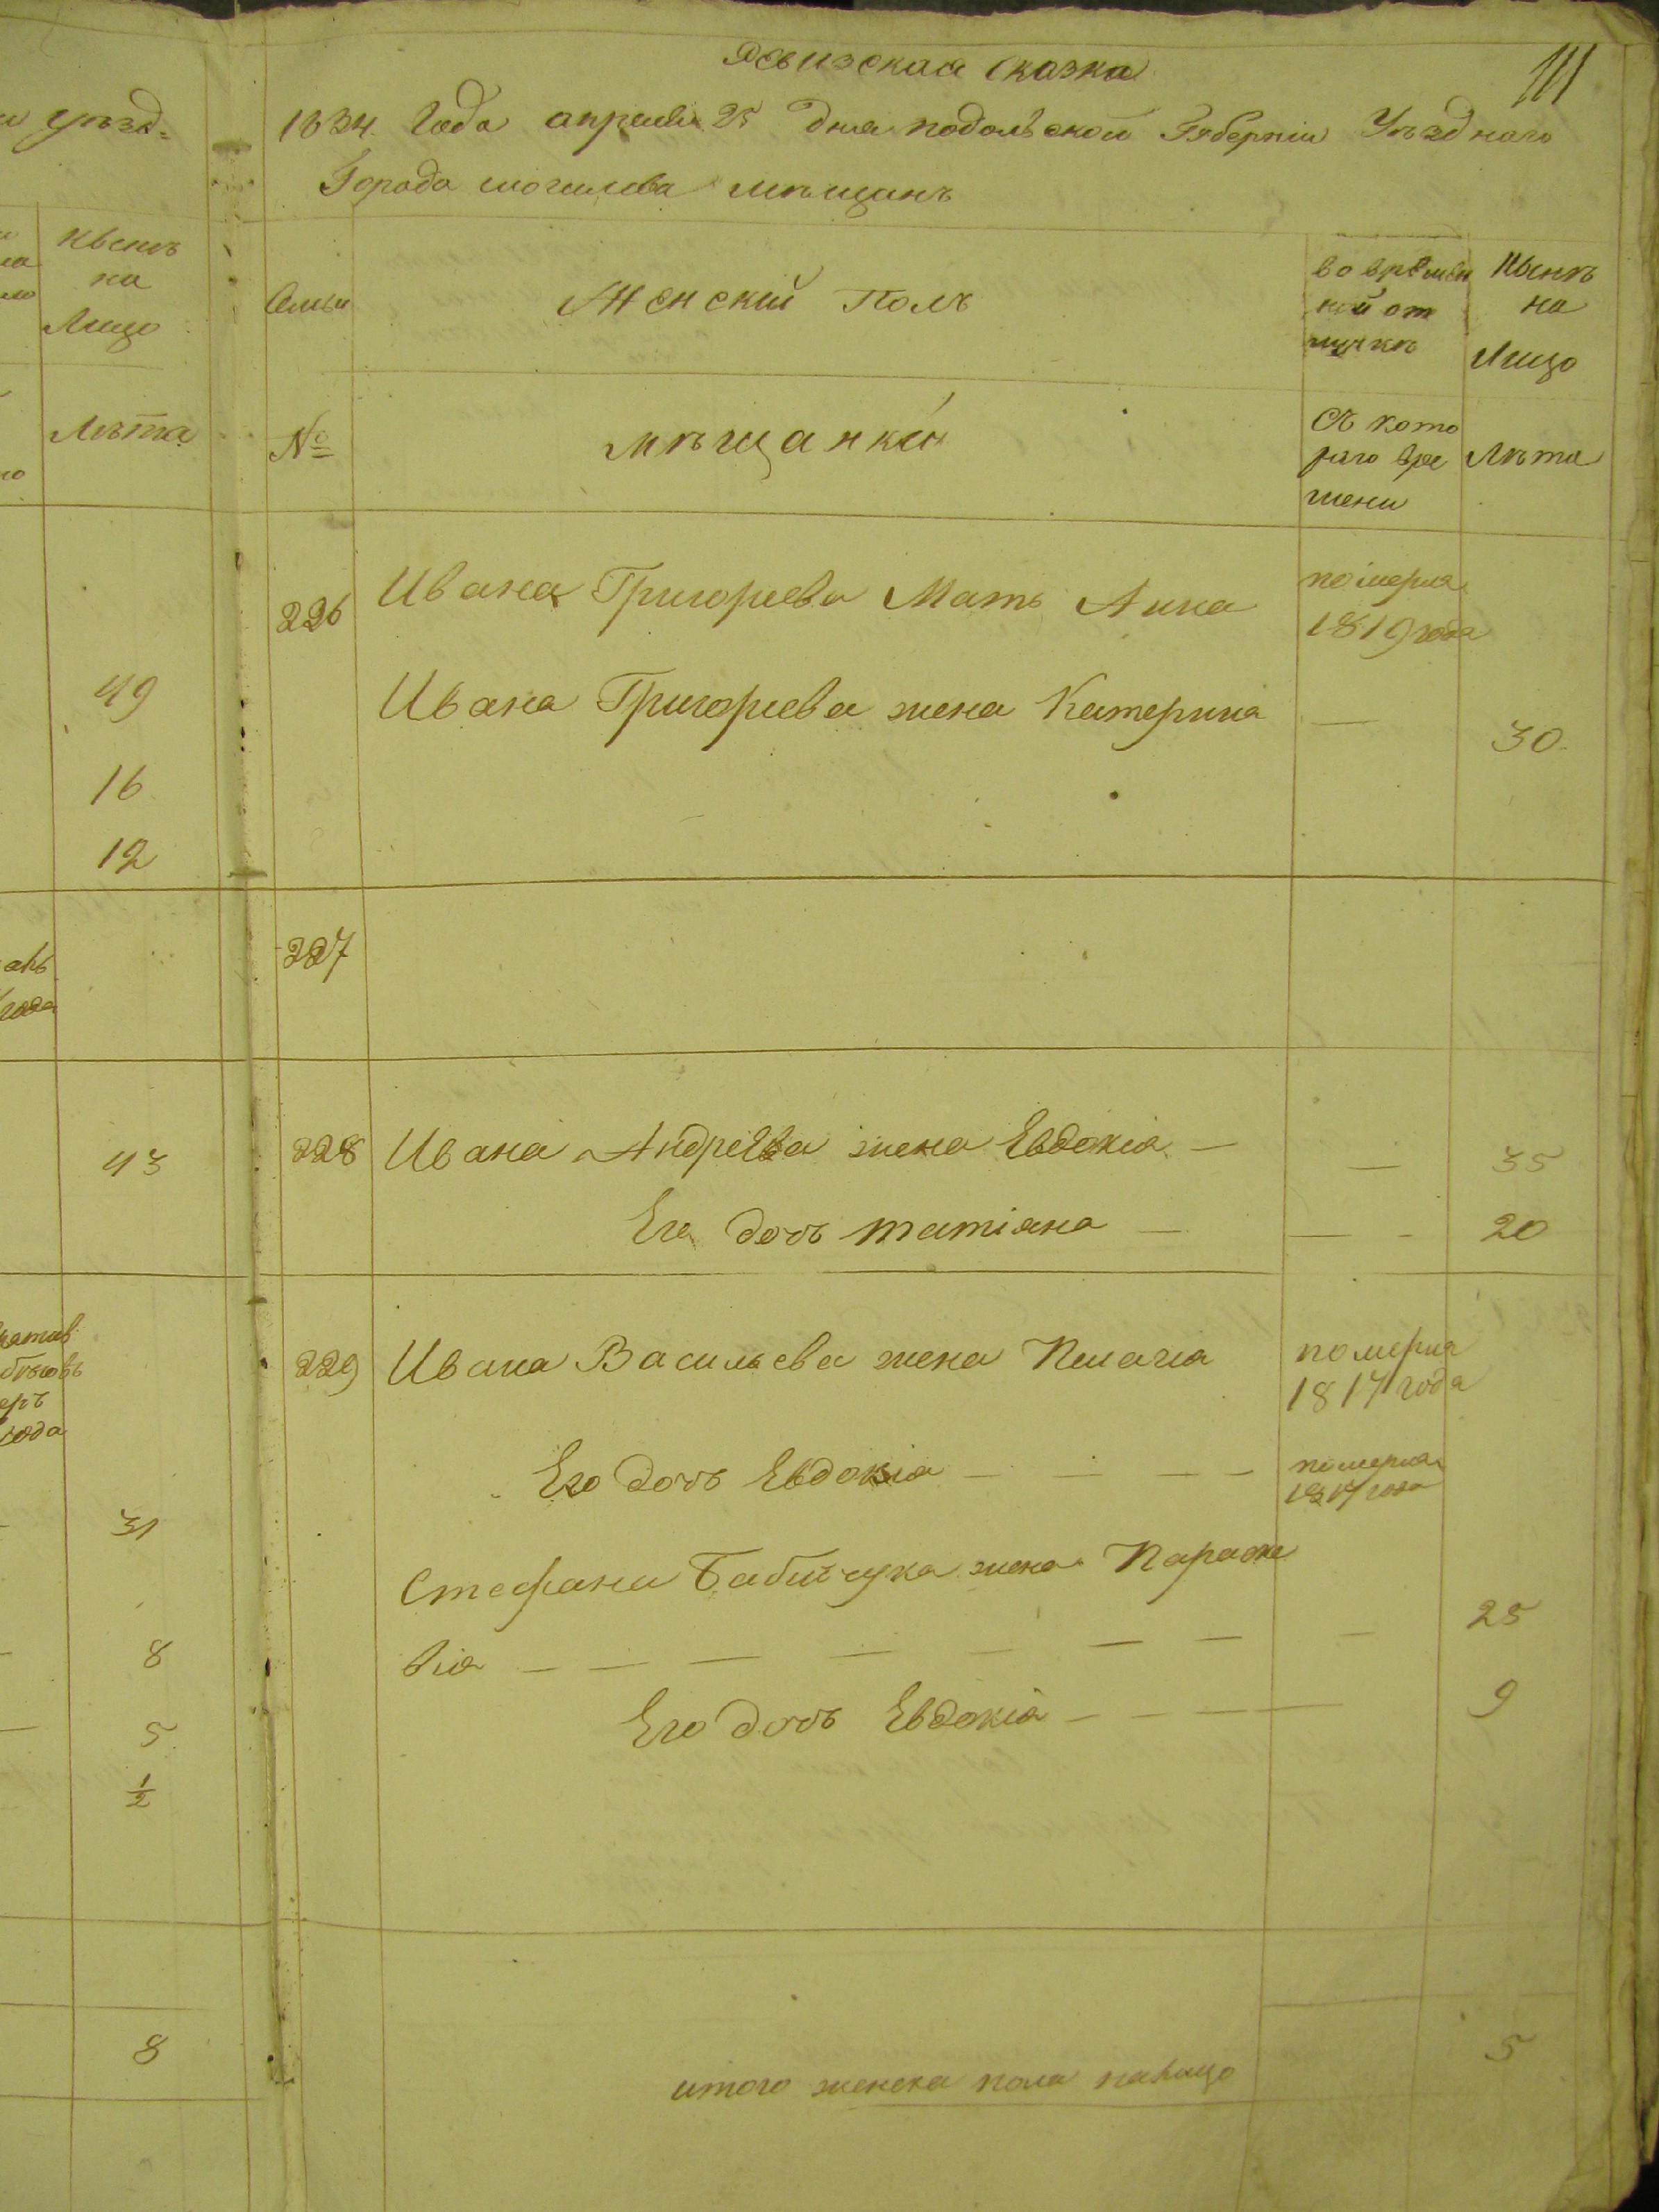 Ревизская сказка
111
1834 Года апреля 25 дня подольской Губернии Уѣздного
Города могилева мѣщанъ
уѣзд-
нынѣ
на
Лицо
Лѣта
49
16
12
года
43
31
8
5
1/2
8
Семьи
Женский Полъ
во времен
ной от
лучкѣ
Нынѣ
на
Лицо
№
мѣщанки
Съ кото
раго вре
мени
Лѣта
226 Ивана Григорьева Мать Анна померла
1819 года
Ивана Григорьева жена Катерина — 30
227
228 Ивана Андреева жена Евдокіа — — 35
Его дочь татіана — — - 20
229 Ивана Васильева жена Пелагіа померла
1817 года
Его дочь Евдокіа — — — — померла
1817 года
Стефана Бабийчука жена Параске
віа — — — — — — — — 25
Его дочь Евдокіа — — — — 9
итого женска пола налицо 5